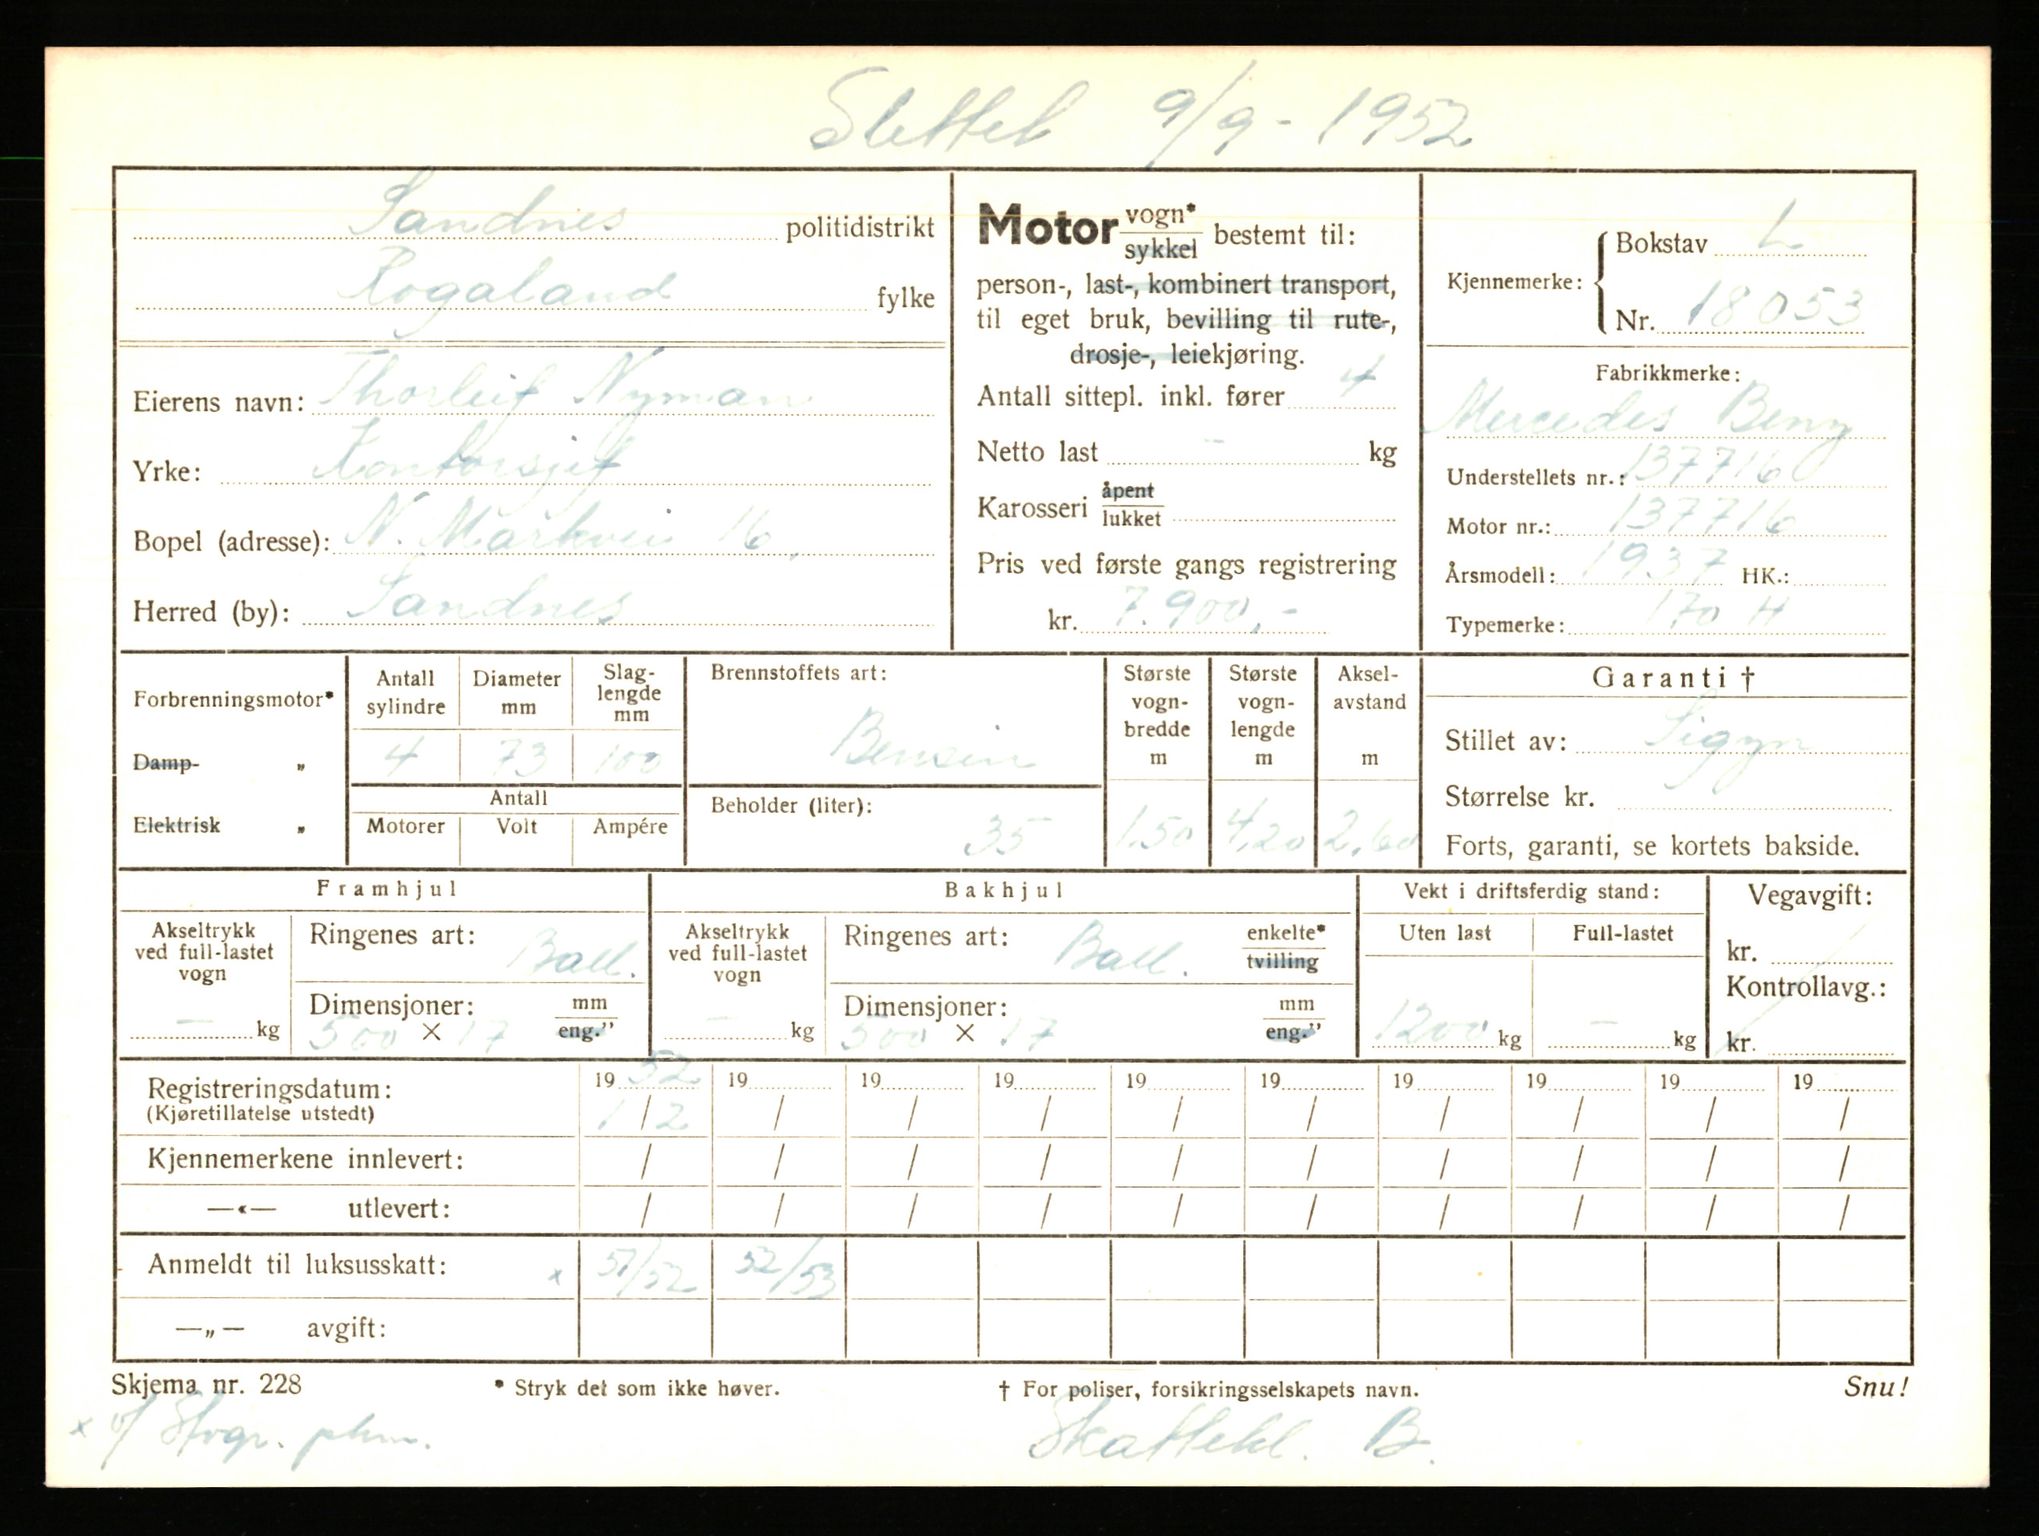 Slettet 9/9-1952
Sandnes politidistrikt
Rogaland fylke
Eierens navn: Thorleif Nyman
Yrke: Kontorsjef
Bopel (adresse): N. Markvei 16,
Herred (by): Sandnes
Motor vogn* sykkel bestemt til:
person-, last-, kombinert transport,
til eget bruk, bevilling til rute-,
drosje-, leiekjøring.
Antall sittepl. inkl. fører 4
Netto last - kg
Karosseri åpent lukket
Pris ved første gangs registrering
kr. 7.900,-
Kjennemerke: Bokstav L
Nr. 18053
Fabrikkmerke:
Mercedes Benz
Understellets nr.: 137716
Motor nr.: 137716
Årsmodell: 1937 HK.:
Typemerke: 170 H
Forbrenningsmotor*
Damp- „
Elektrisk „
Antall sylindre Diameter mm Slag-lengde mm
4 73 100
Antall
Motorer Volt Ampére
Brennstoffets art:
Bensin
Beholder (liter):
35
Største vogn-bredde m
1.50
Største vogn-lengde m
4,20
Aksel-avstand m
2,60
Garanti †
Stillet av: Sigyn
Størrelse kr.
Forts, garanti, se kortets bakside.
Framhjul
Akseltrykk ved full-lastet vogn
- kg
Ringenes art: Ball.
Dimensjoner: mm eng."
500 × 17
Bakhjul
Akseltrykk ved full-lastet vogn
- kg
Ringenes art: Ball. enkelte* tvilling
Dimensjoner: mm eng."
500 × 17
Vekt i driftsferdig stand:
Uten last Full-lastet
1200 kg - kg
Vegavgift:
kr.
Kontrollavg.:
kr.
Registreringsdatum: 19 52 19 19 19 19 19 19 19 19 19
(Kjøretillatelse utstedt) 1/2 / / / / / / / / /
Kjennemerkene innlevert: / / / / / / / / / /
—«— utlevert: / / / / / / / / / /
Anmeldt til luksusskatt: x 51/52 52/53
—„— avgift:
Skjema nr. 228 * Stryk det som ikke høver. † For poliser, forsikringsselskapets navn. Snu!
x Skattekl. B.